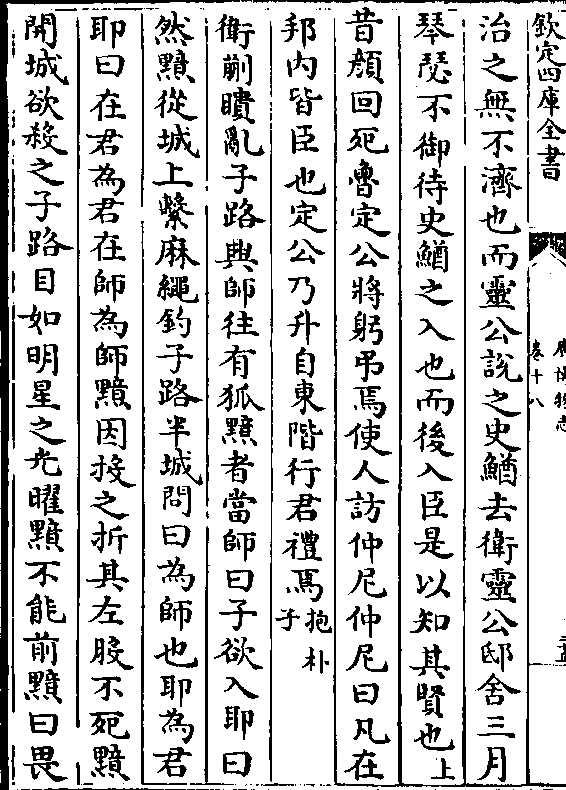 欽定四庫全書
廣博物志
卷十八
治之無不濟也而靈公說之史鰌去衛靈公邸舍三月
琴瑟不御待史鰌之入也而後入臣是以知其賢也上
昔顔回死魯定公將躬弔焉使人訪仲尼仲尼曰凡在
邦内皆臣也定公乃升自東階行君禮焉抱朴子
衛蒯瞶亂子路興師往有狐黯者當師曰子欲入耶曰
然黯從城上繫麻繩釣子路半城問曰為師也耶為君
耶曰在君為君在師為師黯因投之折其左股不死黯
開城欲殺之子路目如明星之光曜黯不能前黯曰畏